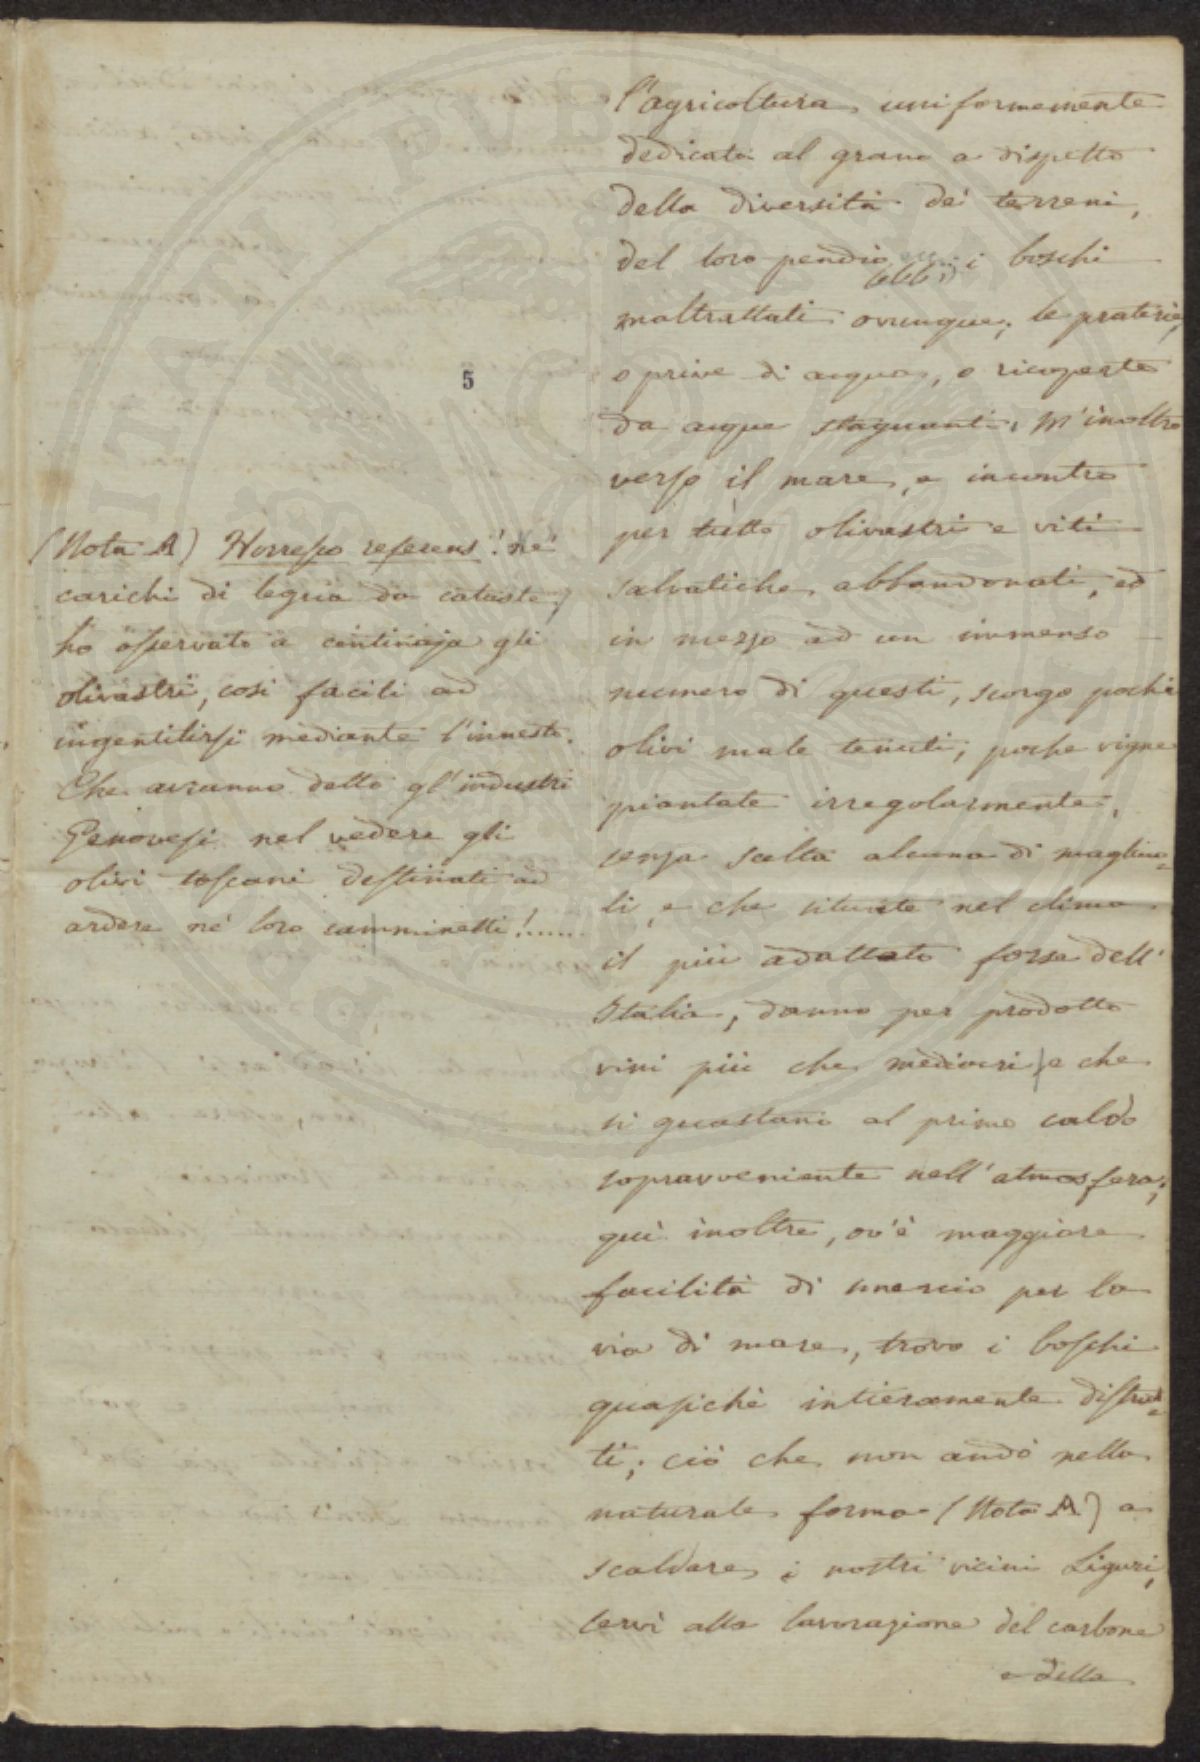 l'agricoltura, uniformemente
dedicata al grano a dispetto
della diversità de' terreni,
del loro pendio i boschi
maltrattati ovunque; le praterie,
o prive di acqua, o ricoperte
da acque stagnanti. M'inoltro
verso il mare, e incontro
per tutto olivastri e viti
salvatiche, abbandonati, ed
in mezzo ad un immenso
numero di questi, scorgo pochi
olivi male tenuti, poche vigne
piantate irregolarmente,
senza scelta alcuna di magliuo=
li, e che situate nel clima
il più adattato forse dell'
Italia, danno per prodotto
vini più che mediocri, e che
si guastano al primo caldo
sopravveniente nell'atmosfera;
quì inoltre, ov'è maggiore
facilità di smercio per la
via di mare, trovo i boschi
quasichè intieramente distrut=
ti; ciò che non andò nella
naturale forma (Nota A) a
scaldare i nostri vicini Liguri,
servì alla lavorazione del carbone
e della
5
(Nota A) Horresco referens! Ne'
carichi di legna da cataste,
ho osservato a centinaja gli
olivastri, così facili ad
ingentilirsi mediante l'innesto.
Che avranno detto gl'industri
Genovesi nel vedere gli
olivi toscani destinati ad
ardere ne' loro camminetti!.....